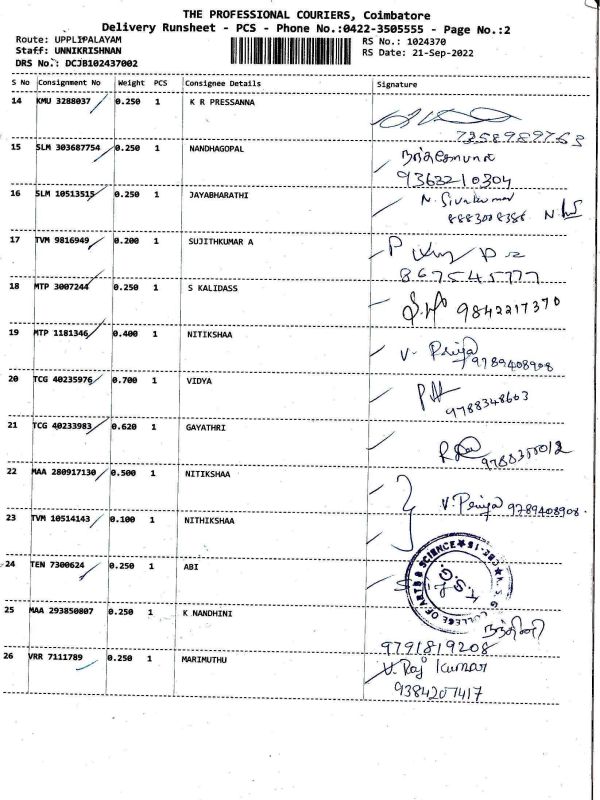 THE PROFESSIONAL COURIERS, Coimbatore
Delivery Runsheet - PCS - Phone No.:0422-3505555 - Page No.:2
Route: UPPLIPALAYAM RS No.: 1024370
Staff: UNNIKRISHNAN RS Date: 21-Sep-2022
DRS No.: DCJB102437002
S No Consignment No Weight PCS Consignee Details Signature
14 KMU 3288037 0.250 1 K R PRESSANNA
7358989763
15 SLM 303687754 0.250 1 NANDHAGOPAL
9363210304
16 SLM 10513515 0.250 1 JAYABHARATHI N. Sivakumar
8883008386
17 TVM 9816949 0.200 1 SUJITHKUMAR A
867545777
18 MTP 3007244 0.250 1 S KALIDASS 9842217370
19 MTP 1181346 0.400 1 NITIKSHAA V. Priya
9789408908
20 TCG 40235976 0.700 1 VIDYA
9788348603
21 TCG 40233983 0.620 1 GAYATHRI
22 MAA 280917130 0.500 1 NITIKSHAA V. Priya 9789408908.
23 TVM 10514143 0.100 1 NITHIKSHAA
24 TEN 7300624 0.250 1 ABI
K.S.G. COLLEGE OF ARTS & SCIENCE ★ CBE-15 ★
K.S.G.
25 MAA 293850807 0.250 1 K NANDHINI நந்தினி
9791819208
26 VRR 7111789 0.250 1 MARIMUTHU V. Raj Kumar
9384207417